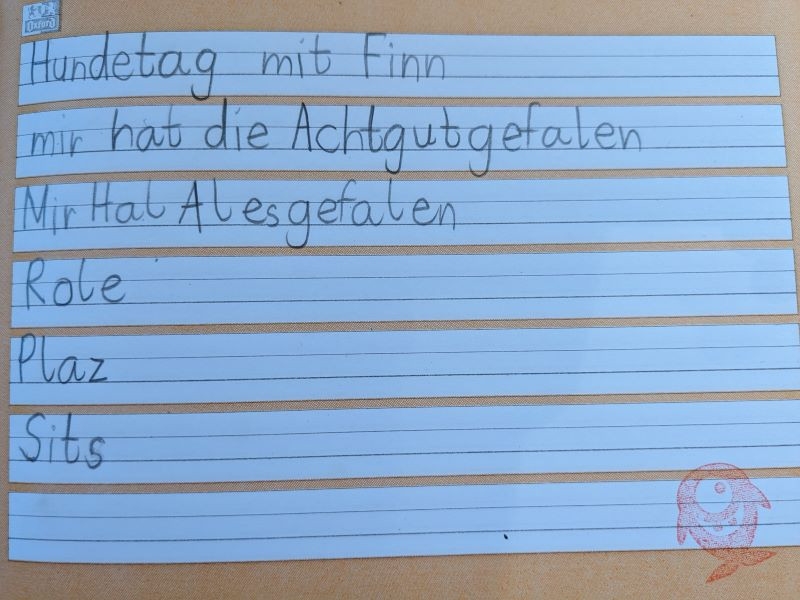 Oxford
Hundetag mit Finn
mir hat die Achtgutgefalen
Mir Hal Alesgefalen
Role
Plaz
Sits